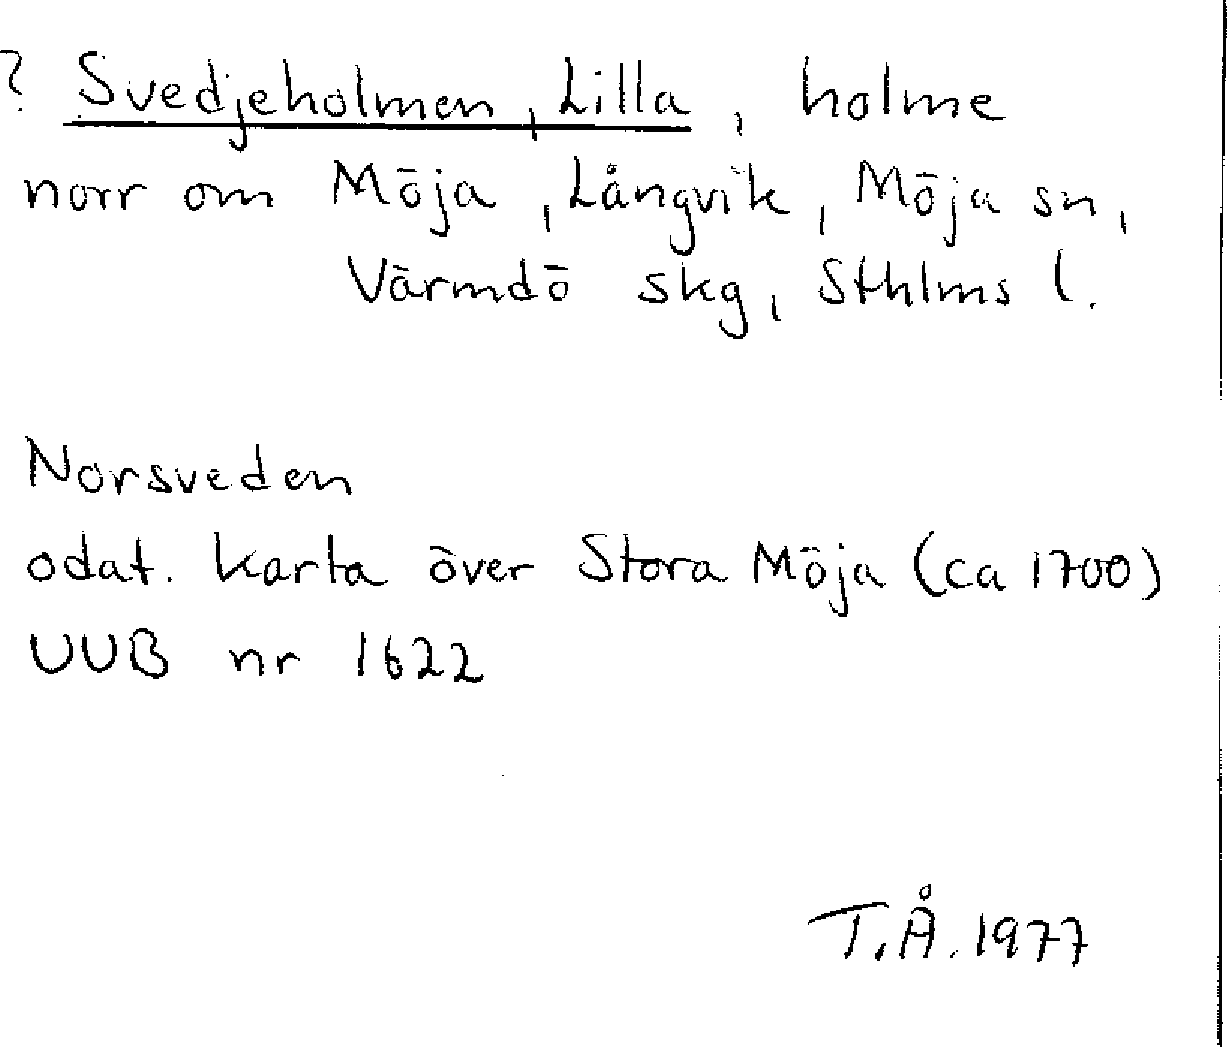 ? Svedjeholmen, Lilla, holme
norr om Möja, Långvik, Möja sn,
Värmdö skg, Sthlms l.
Norsveden
odat. karta över Stora Möja (ca 1700)
UUB nr 1622
T.Å. 1977